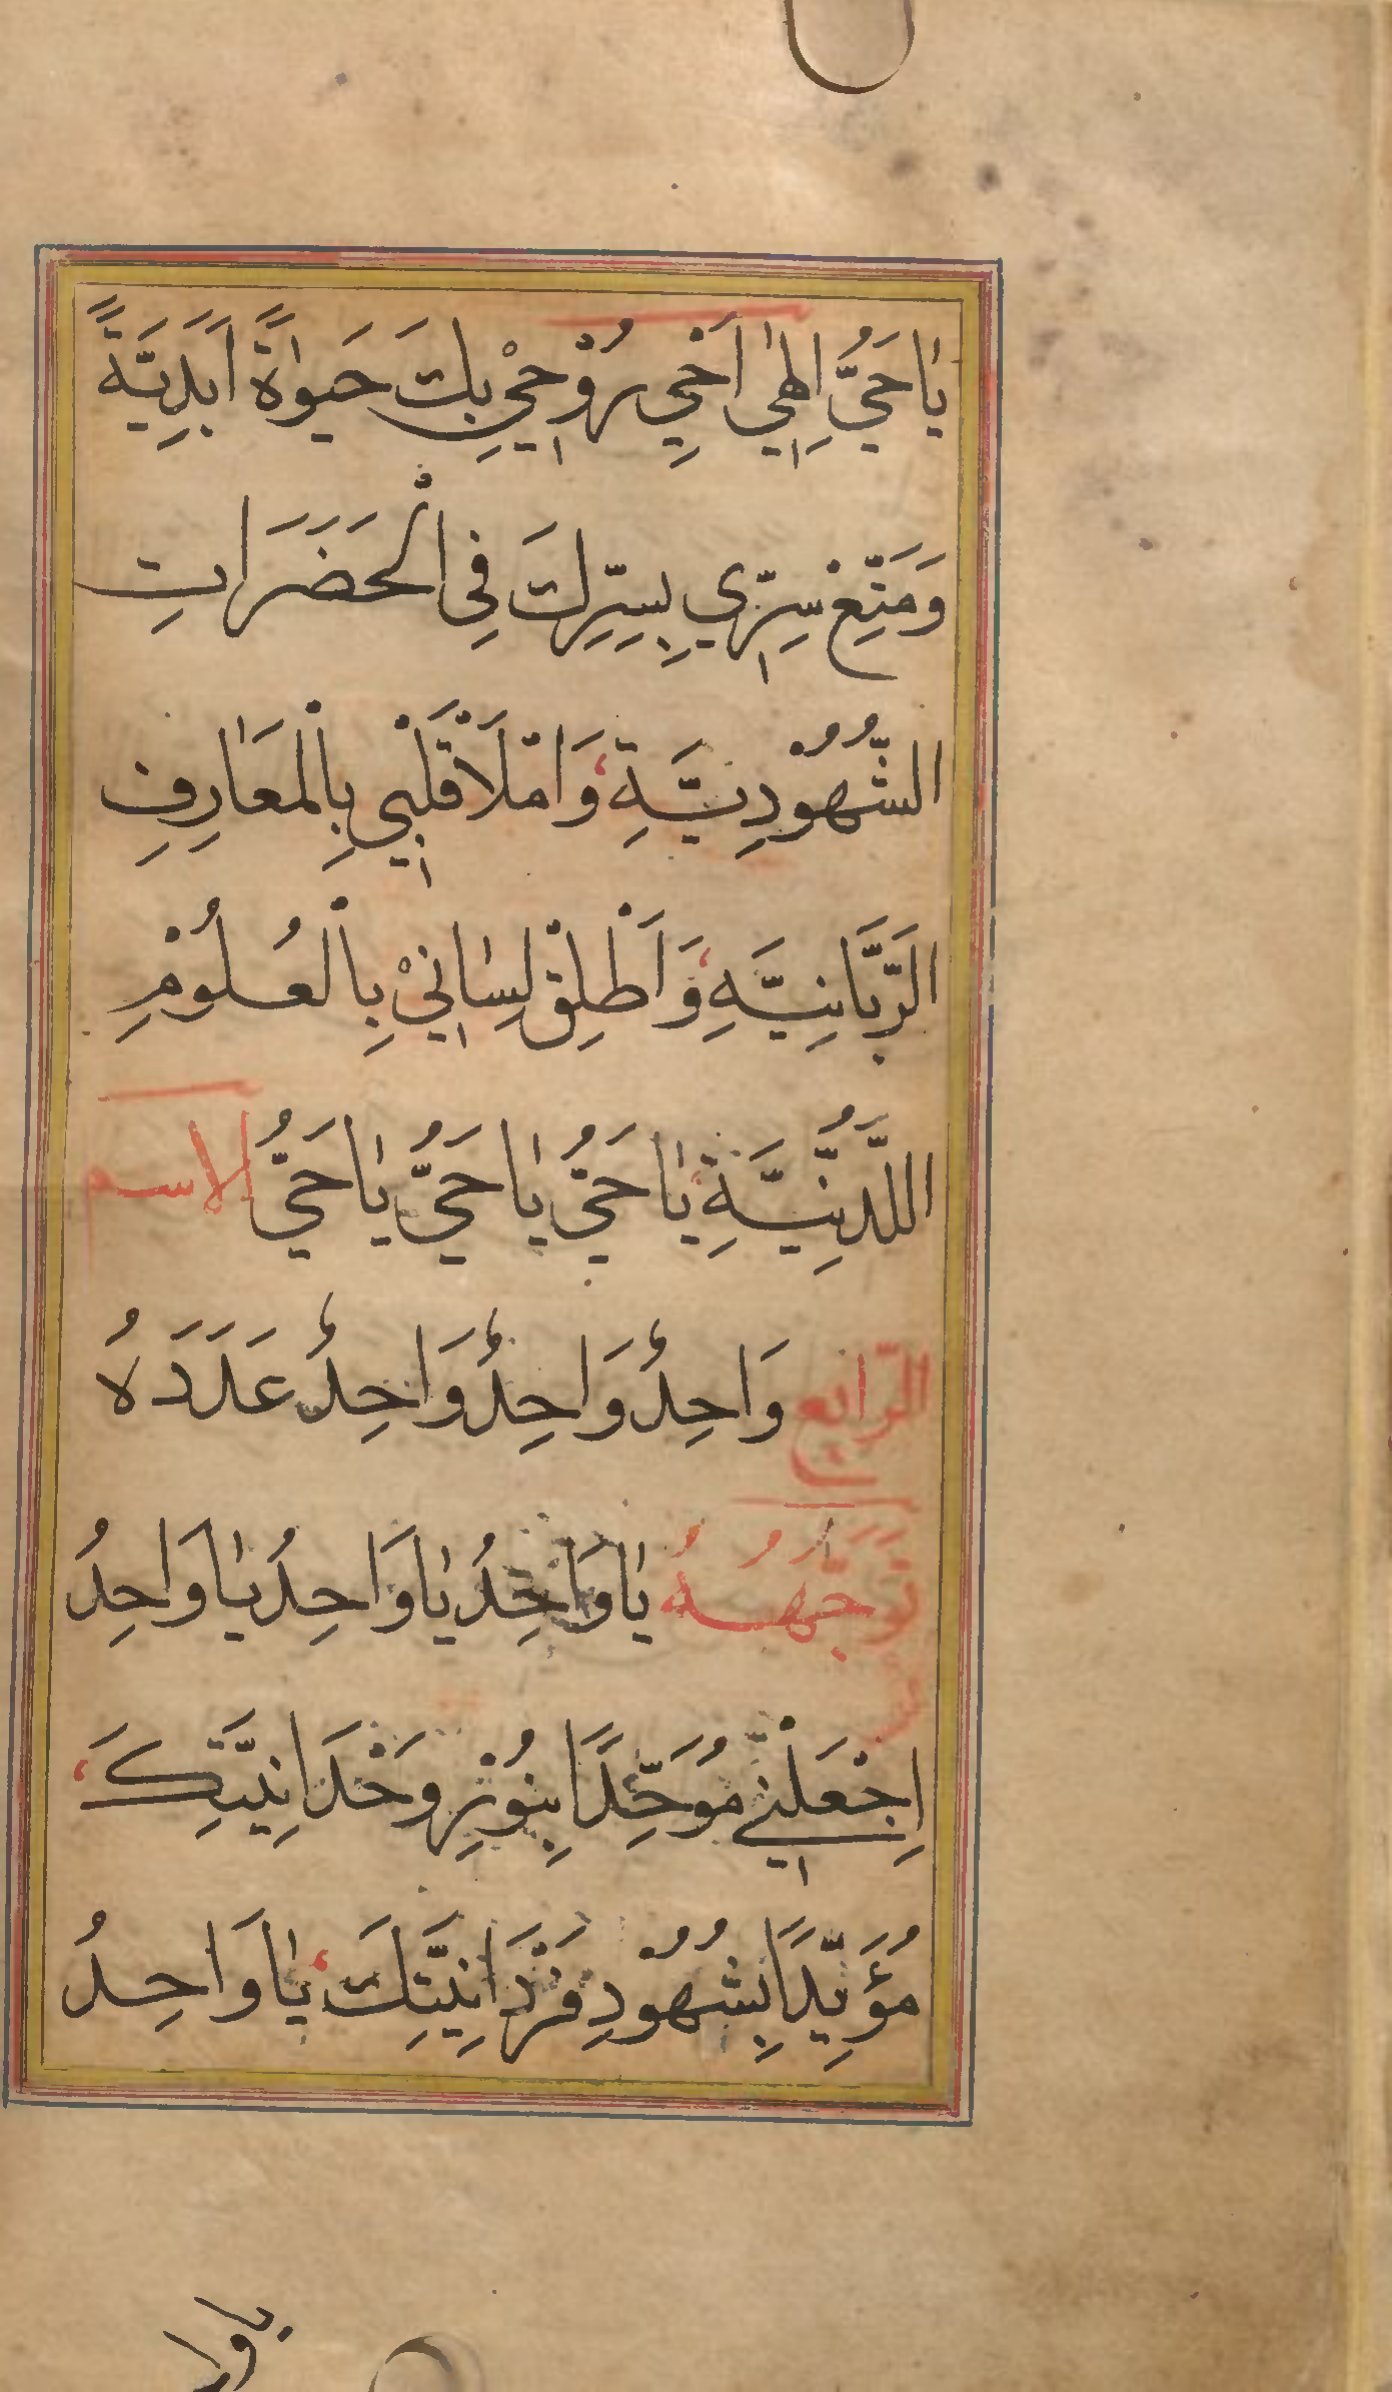 يَا حَيُّ اِلٰهِي اَحْيِ رُوْحِيْ بِكَ حَيٰوةً اَبَدِيَّةً
وَمَتِّعْ سِرِّي بِسِرِّكَ فِى الْحَضَرَاتِ
الشُّهُوْدِيَّةِ وَامْلَأْ قَلْبِي بِالْمَعَارِفِ
الرَّبَّانِيَّةِ وَاَطْلِقْ لِسَانِيْ بِالْعُلُوْمِ
اللَّدُنِّيَّةِ يَا حَيُّ يَا حَيُّ يَا حَيُّ الاسم
الرّابع وَاحِدٌ وَاحِدٌ وَاحِدٌ عَدَدَهُ
تَوَجُّهُهُ يَا وَاحِدُ يَا وَاحِدُ يَا وَاحِدُ
اِجْعَلْنِي مُوَحِّدًا بِنُوْرِ وَحْدَانِيَّتِكَ
مُؤَيَّدًا بِشُهُوْدِ فَرْدَانِيَّتِكَ يَا وَاحِدُ